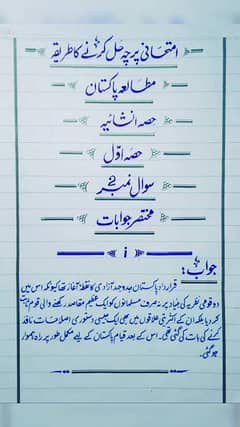 امتحانی پرچہ حل کرنے کا طریقہ
مطالعہ پاکستان
حصہ انشائیہ
حصہ اوّل
سوال نمبر 2
مختصر جوابات
i
جواب:
قرارداد پاکستان جدوجہد آزادی کا نقطۂ آغاز تھا کیونکہ اس میں
دو قومی نظریہ کی بنیاد پر نہ صرف مسلمانوں کو ایک عظیم مقاصد رکھنے والی قوم ثابت
کر دیا بلکہ ان کے اکثریتی علاقوں میں بھی ایک جیسی دستوری اصلاحات نافذ
کرنے کی بات کی گئی تھی۔ اس کے بعد قیام پاکستان کے لیے مکمل طور پر راہ ہموار
ہو گئی۔